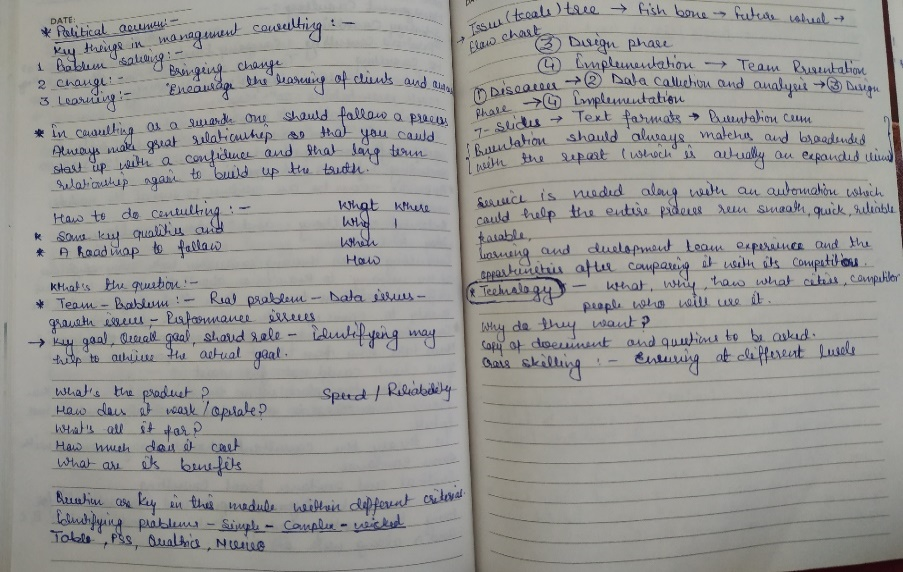 DATE:
* Political acumen:-
Key things in management consulting :-
1 Problem solving:-
2 Change:- Bringing change
3 Learning:- Encourage the learning of clients and
* In consulting as a one should follow a process
Always make great relationship so that you could
start up with a confidence and that long term
relationship again to build up the truth.
How to do consulting :- What Where
* Some key qualities and Why 1
* A Roadmap to follow When
How
What's the question:-
* Team - Problem :- Real problem - Data issues -
growth issues - Performance issues
→ Key goal, Overall goal, shared role - Identifying may
help to achieve the actual goal.
What's the product ? Speed / Reliability
How does it work / operate?
What's all it for?
How much does it cost
What are its benefits
Question are key in this module written different criterias
Identifying problems - Simple - Complex - wicked
Table , PSS, Qualtrics, Nvivo
→ Issue (trade) tree → Fish bone → Future wheel →
flow chart
③ Design phase
④ Implementation → Team Presentation
① Discover → ② Data Collection and analysis → ③ Design
Phase → ④ Implementation
7- slides → Text formats → Presentation
Presentation should always matches and broadended
with the report (which is actually an expanded
Service is needed along with an automation which
could help the entire process run smooth, quick, reliable
Learning and development team experience and the
opportunities after comparing it with its competitors.
* Technology - What, why, how what cities, competitor
people who will use it.
Why do they want?
Copy of document and questions to be asked.
Cross skilling :- Ensuring at different levels